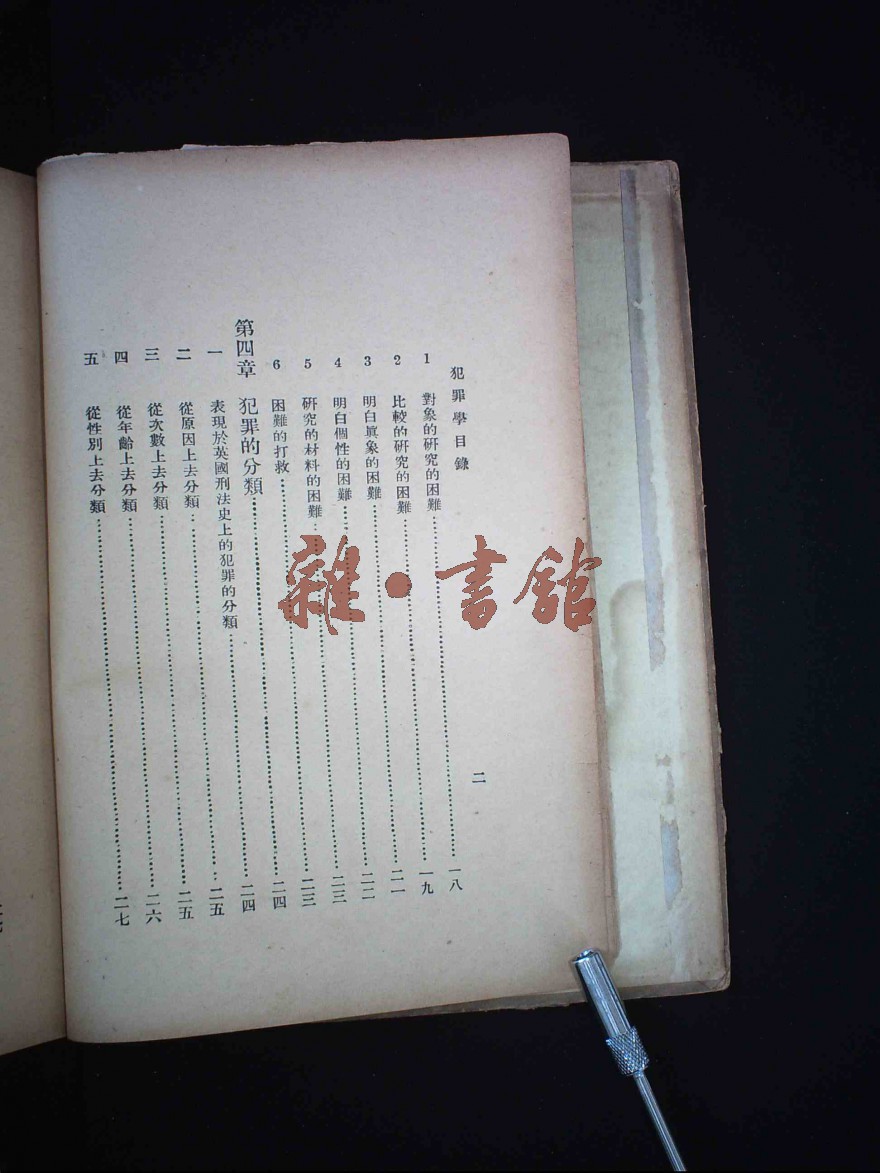 犯罪學目錄 二
1 對象的研究的困難……一八
2 比較的研究的困難……一九
3 明白眞象的困難……二一
4 明白個性的困難……二二
5 研究的材料的困難……二三
6 困難的打救……二三
第四章 犯罪的分類……二四
一 表現於英國刑法史上的犯罪的分類……二四
二 從原因上去分類……二五
三 從次數上去分類……二五
四 從年齡上去分類……二六
五 從性別上去分類……二七
雜·書館